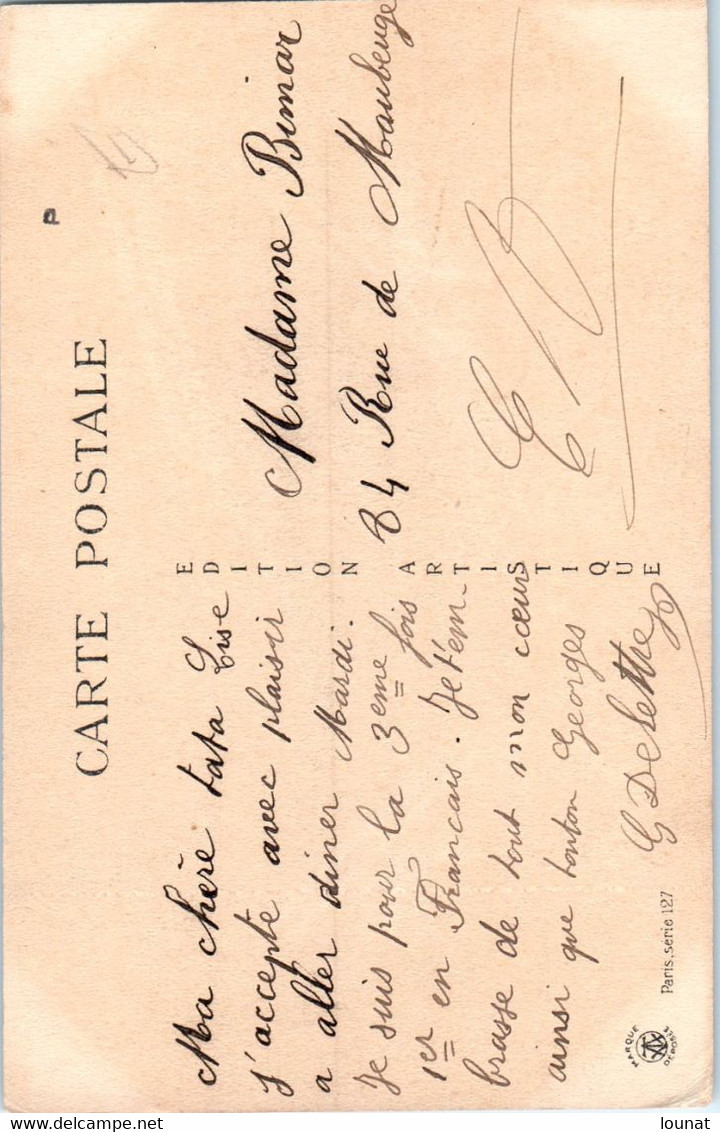 CARTE POSTALE
Ma chère tata Lise
j'accepte avec plaisir
a aller diner Mardi.
Je suis pour la 3eme fois
1er en Francais. Je t'em-
brasse de tout mon cœur
ainsi que tonton Georges
G Delethe
EDITION ARTISTIQUE
Madame Bimar
84 Rue de Maubeuge
MARQUE
DEPOSÉE
Paris, série 127
P
lounat